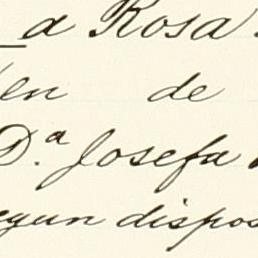 a Rosa
en de
D.ª Josefa
egun dispos